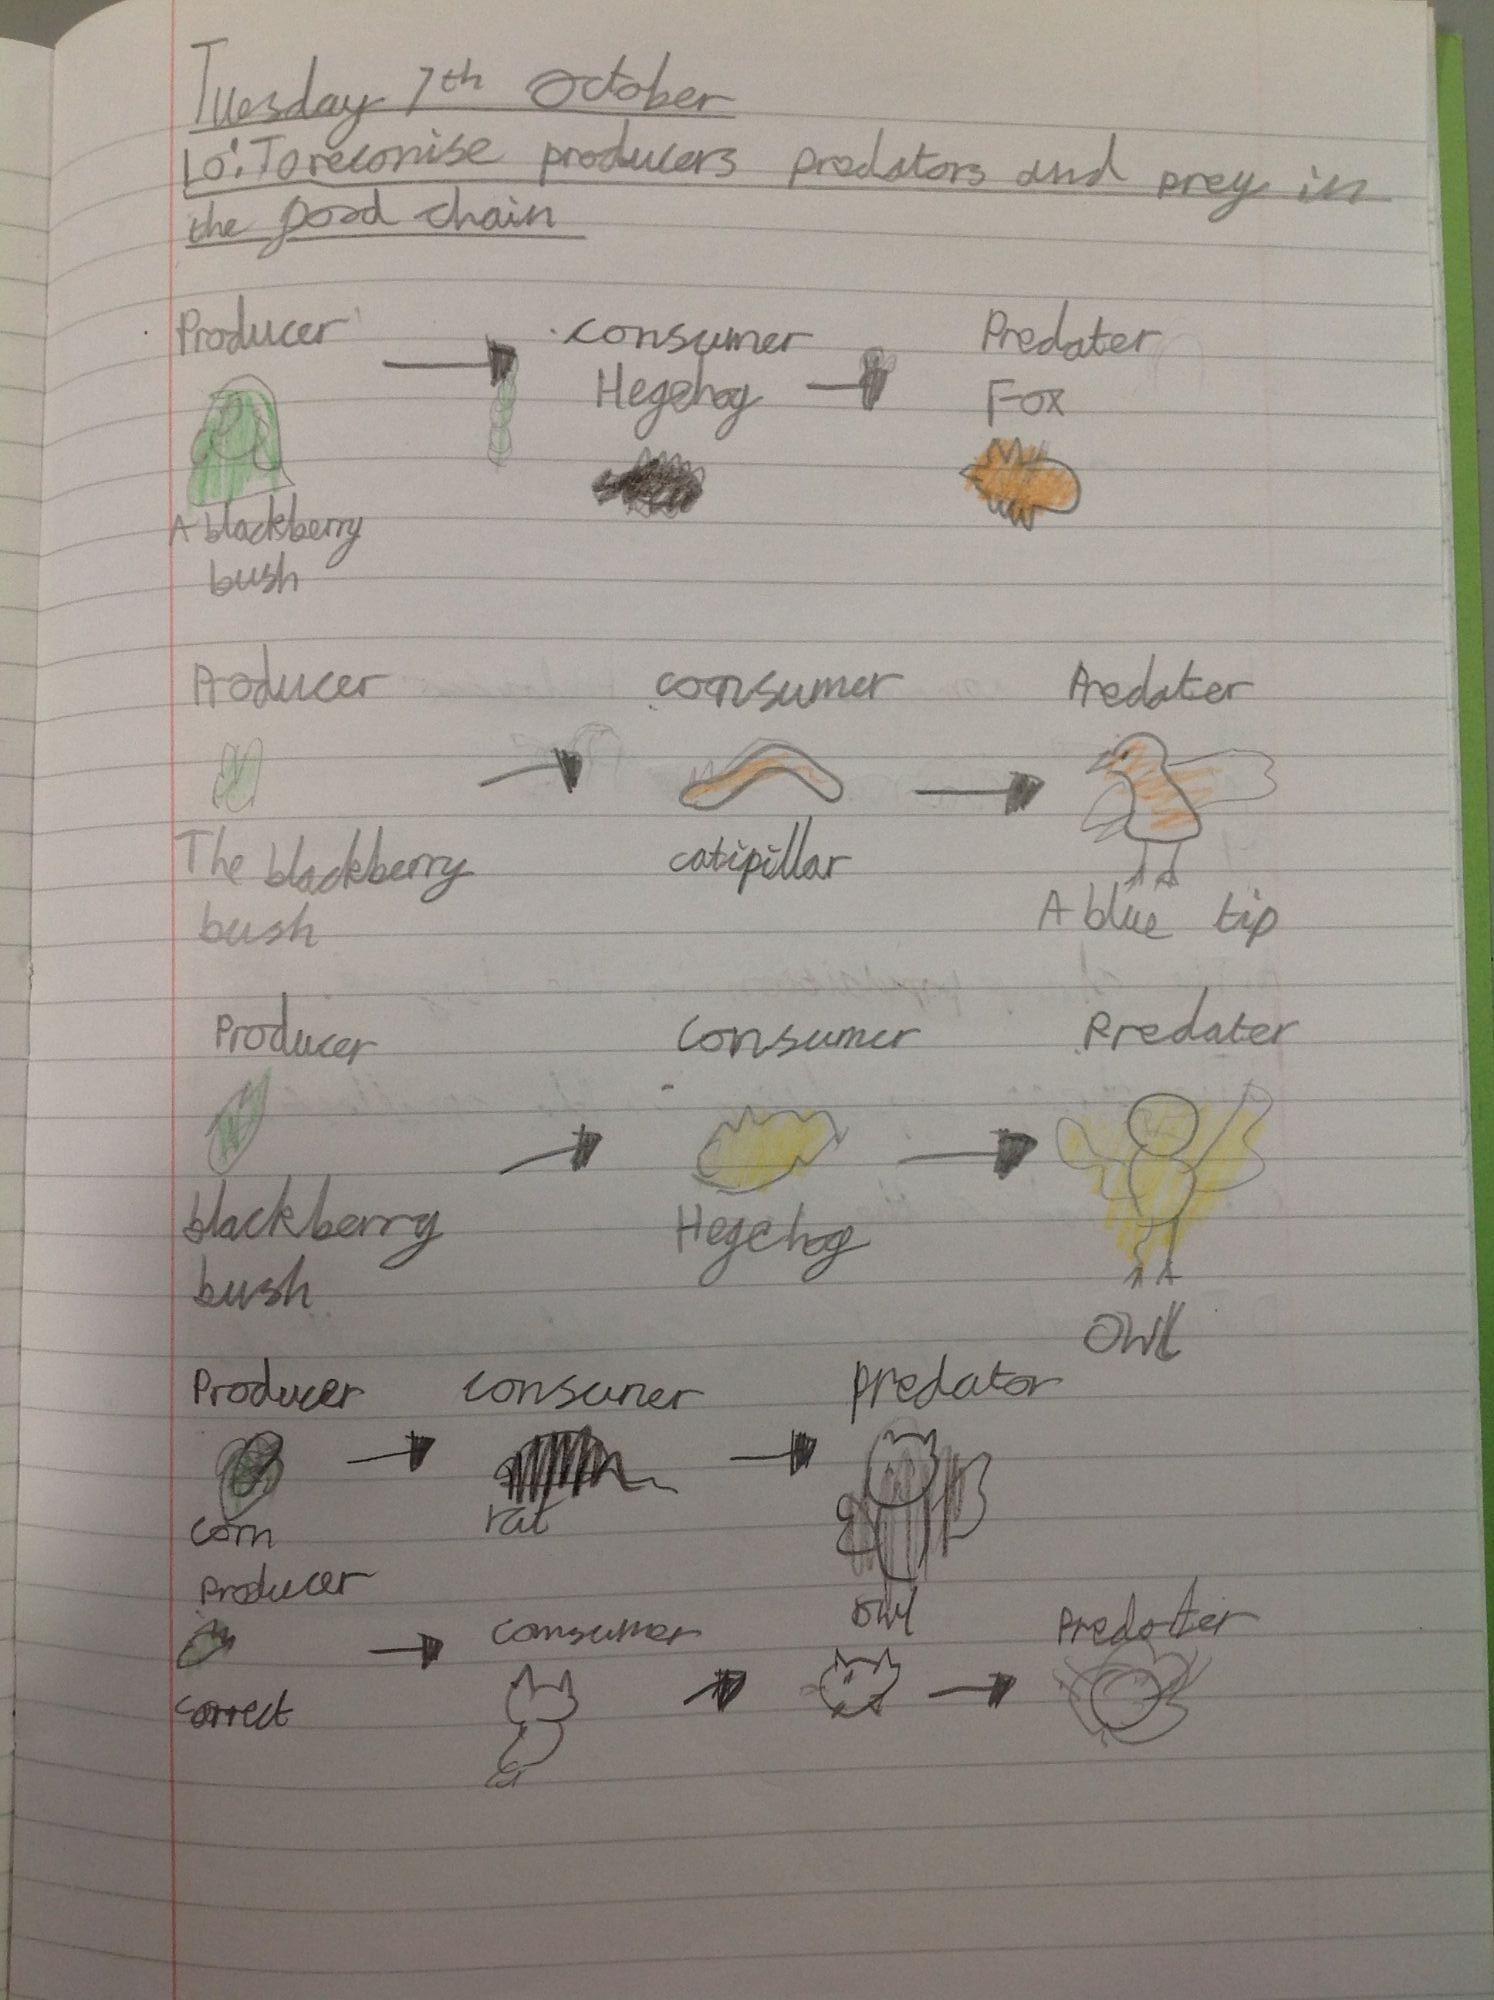 Tuesday 7th October
Lo: To reconise producers predators and prey in
the food chain
Producer consumer Predater
Hegehog Fox
A blackberry
bush
Producer consumer Predater
The blackberry catipillar
bush A blue tip
Producer Consumer Predater
blackberry Hegehog
bush
owl
Producer consumer predator
corn rat
owl
Producer
consumer Predater
correct